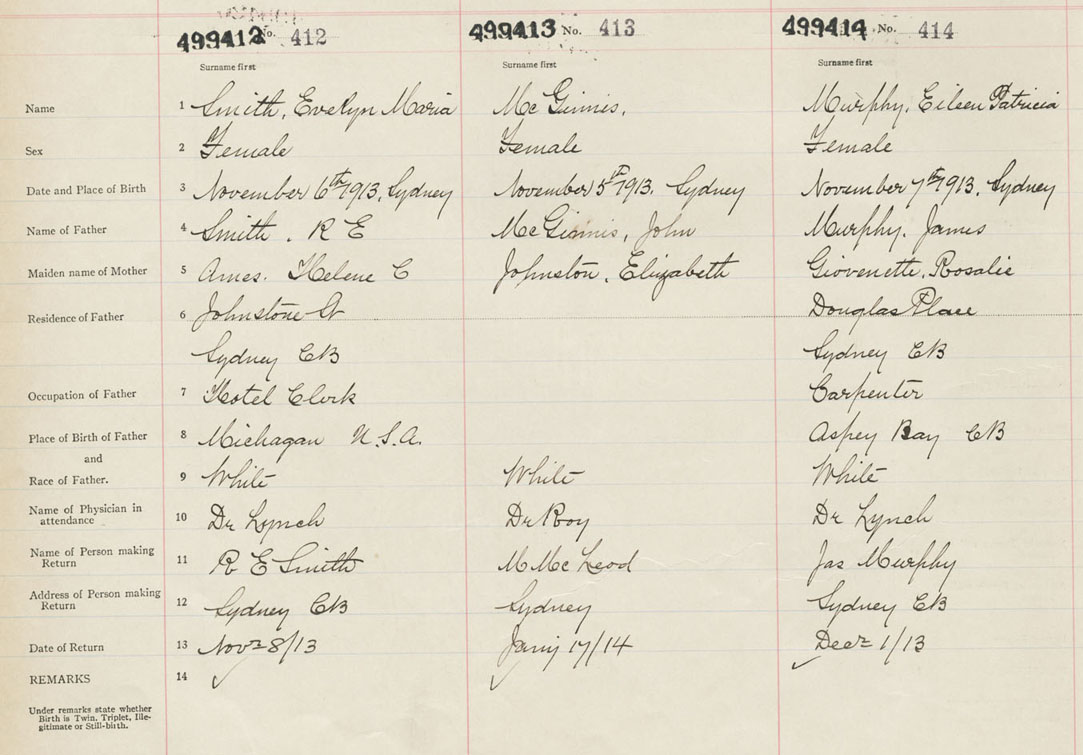 499412 No. 412 499413 No. 413 499414 No. 414
Surname first Surname first Surname first
Name 1 Smith, Evelyn Maria Mc Ginnis, Murphy, Eileen Patricia
Sex 2 Female Female Female
Date and Place of Birth 3 November 6th 1913, Sydney November 5th 1913, Sydney November 7th 1913, Sydney
Name of Father 4 Smith, R E McGinnis, John Murphy, James
Maiden name of Mother 5 Ames. Helene C Johnston, Elizabeth Giovenette, Rosalie
Residence of Father 6 Johnstone St Douglas Place
Sydney CB Sydney CB
Occupation of Father 7 Hotel Clerk Carpenter
Place of Birth of Father 8 Michagan U.S.A. Aspey Bay CB
and
Race of Father. 9 White White White
Name of Physician in
attendance 10 Dr Lynch Dr Roy Dr Lynch
Name of Person making
Return 11 R E Smith M McLeod Jas Murphy
Address of Person making
Return 12 Sydney CB Sydney Sydney CB
Date of Return 13 Novr 8/13 Jany 17/14 Decr 1/13
REMARKS 14
Under remarks state whether
Birth is Twin, Triplet, Ille-
gitimate or Still-birth.